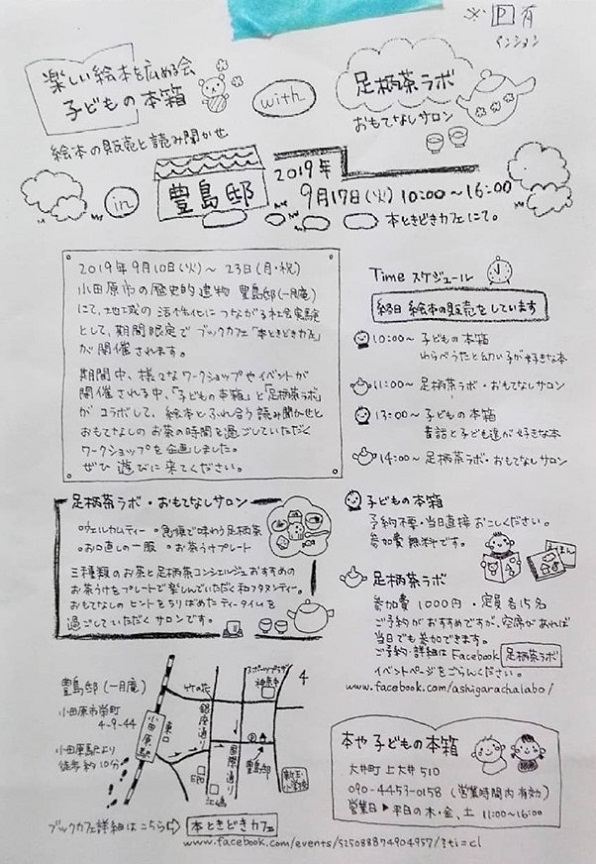 ※ P 有
楽しい絵本を広める会
子どもの本箱
with
足柄茶ラボ
おもてなしサロン
絵本の販売と読み聞かせ
in
豊島邸
2019年
9月17日(火) 10:00〜16:00
本ときどきカフェにて。
2019年9月10日(火)〜 23日(月・祝)
小田原市の歴史的建物 豊島邸(一月庵)
にて、地域の活性化につながる社会実験
として、期間限定で ブックカフェ「本ときどきカフェ」
が開催されます。
期間中、様々なワークショップやイベントが
開催される中、「子どもの本箱」と「足柄茶ラボ」
が コラボして、絵本とふれ合う読み聞かせと
おもてなしのお茶の時間を過ごしていただく
ワークショップを企画しました。
ぜひ 遊びに来てください。
Time スケジュール
終日 絵本の販売をしています
10:00〜 子どもの本箱
わらべうたと幼い子が好きな本
11:00〜 足柄茶ラボ・おもてなしサロン
13:00〜 子どもの本箱
昔話と子ども達が好きな本
14:00〜 足柄茶ラボ・おもてなしサロン
足柄茶ラボ・おもてなしサロン
○ウェルカムティー ○急須で味わう足柄茶
○お口直しの一服 ○お茶うけプレート
三種類のお茶と足柄茶コンシェルジュおすすめの
お茶うけをプレートで楽しんでいただく和フタヌンティー。
おもてなしのヒントをちりばめたティータイムを
過ごしていただくサロンです。
子どもの本箱
予約不要・当日直接おこしください。
参加費無料です。
足柄茶ラボ
参加費 1000円 ・定員各15名
ご予約がおすすめですが、空席があれば
当日でも参加できます。
ご予約・詳細は Facebook 足柄茶ラボ
イベントページをごらんください。
www.facebook.com/ashigarachalabo/
豊島邸 (一月庵)
小田原市栄町
4-9-44
小田原駅より
徒歩約10分
小田原駅
東口
竹の花
銀座通り
国際通り
豊島邸
EPO
江嶋
4
本や 子どもの本箱
大井町 上大井 510
090-4453-0158 (営業時間内有効)
営業日 ▶ 平日の木・金、土 11:00〜16:00
ブックカフェ詳細はこちら⇨ 本ときどきカフェ
www.facebook.com/events/525088874904957/?ti=cl